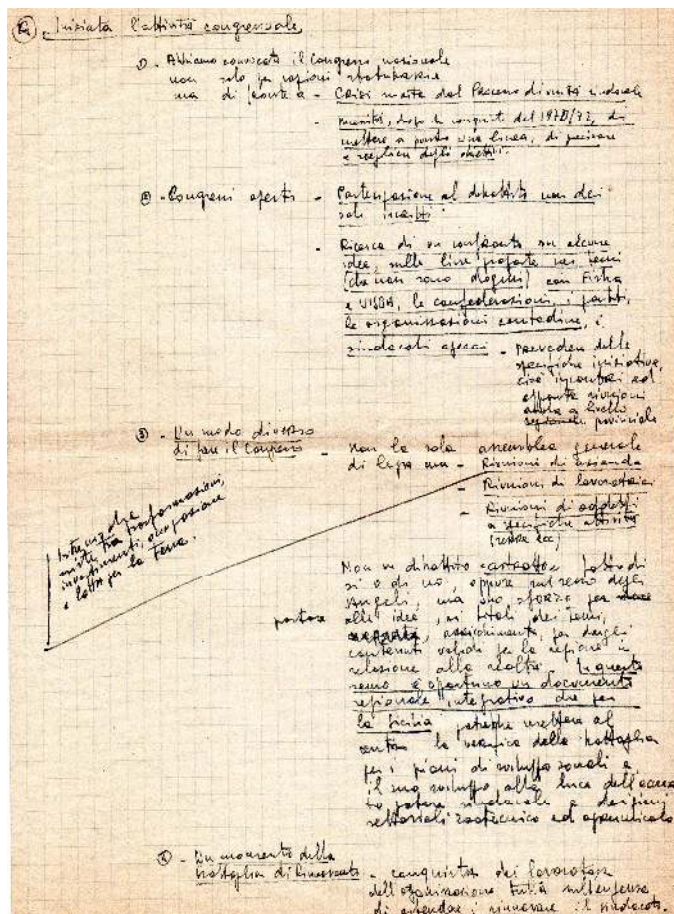 Iniziata l'attività congressuale
① - Abbiamo convocato il Congresso nazionale
non solo per ragioni statutarie
ma di fronte a - Crisi del Processo di unità sindacale
- necessità, dopo le conquiste del 1970/72, di
mettere a punto una linea, di precisare
e scegliere degli obiettivi.
② - Congressi aperti - Partecipazione al dibattito non dei
soli iscritti
- Ricerca di un confronto su alcune
idee, sulle linee proposte nei temi
(che non sono dogmi) con Fisba
e UISBA, le confederazioni, i partiti,
le organizzazioni contadine, i
sindacati - prevedere delle
specifiche iniziative,
cioè incontri ed
riunioni
anche a livello
provinciale
③ - Un modo diverso
di fare il Congresso - Non la sola assemblea generale
di lega ma - Riunioni di azienda
- Riunioni di lavoratrici
- Riunioni di addetti
a specifiche attività
che
trasformazioni,
investimenti, occupazione
e lotta per la Terra.
Non un dibattito fatto di
si o di no, oppure sul sesso degli
Angeli, ma uno sforzo per
portare alle idee, ai titoli dei temi,
arricchimento, per dargli
contenuti validi per la regione in
relazione alla realtà. In questo
senso è opportuno un documento
regionale integrativo che per
la Sicilia potrebbe mettere al
centro la della battaglia
per i piani di sviluppo zonali e
il suo sviluppo alla luce dell'
potere sindacale e decisioni
settoriali zootecnico ed agrumicolo
- Un momento della
battaglia di Rinnovamento - conquista dei lavoratori
dell'organizzazione tutta sull'esigenza
di estendere i rinnovare il sindacato.